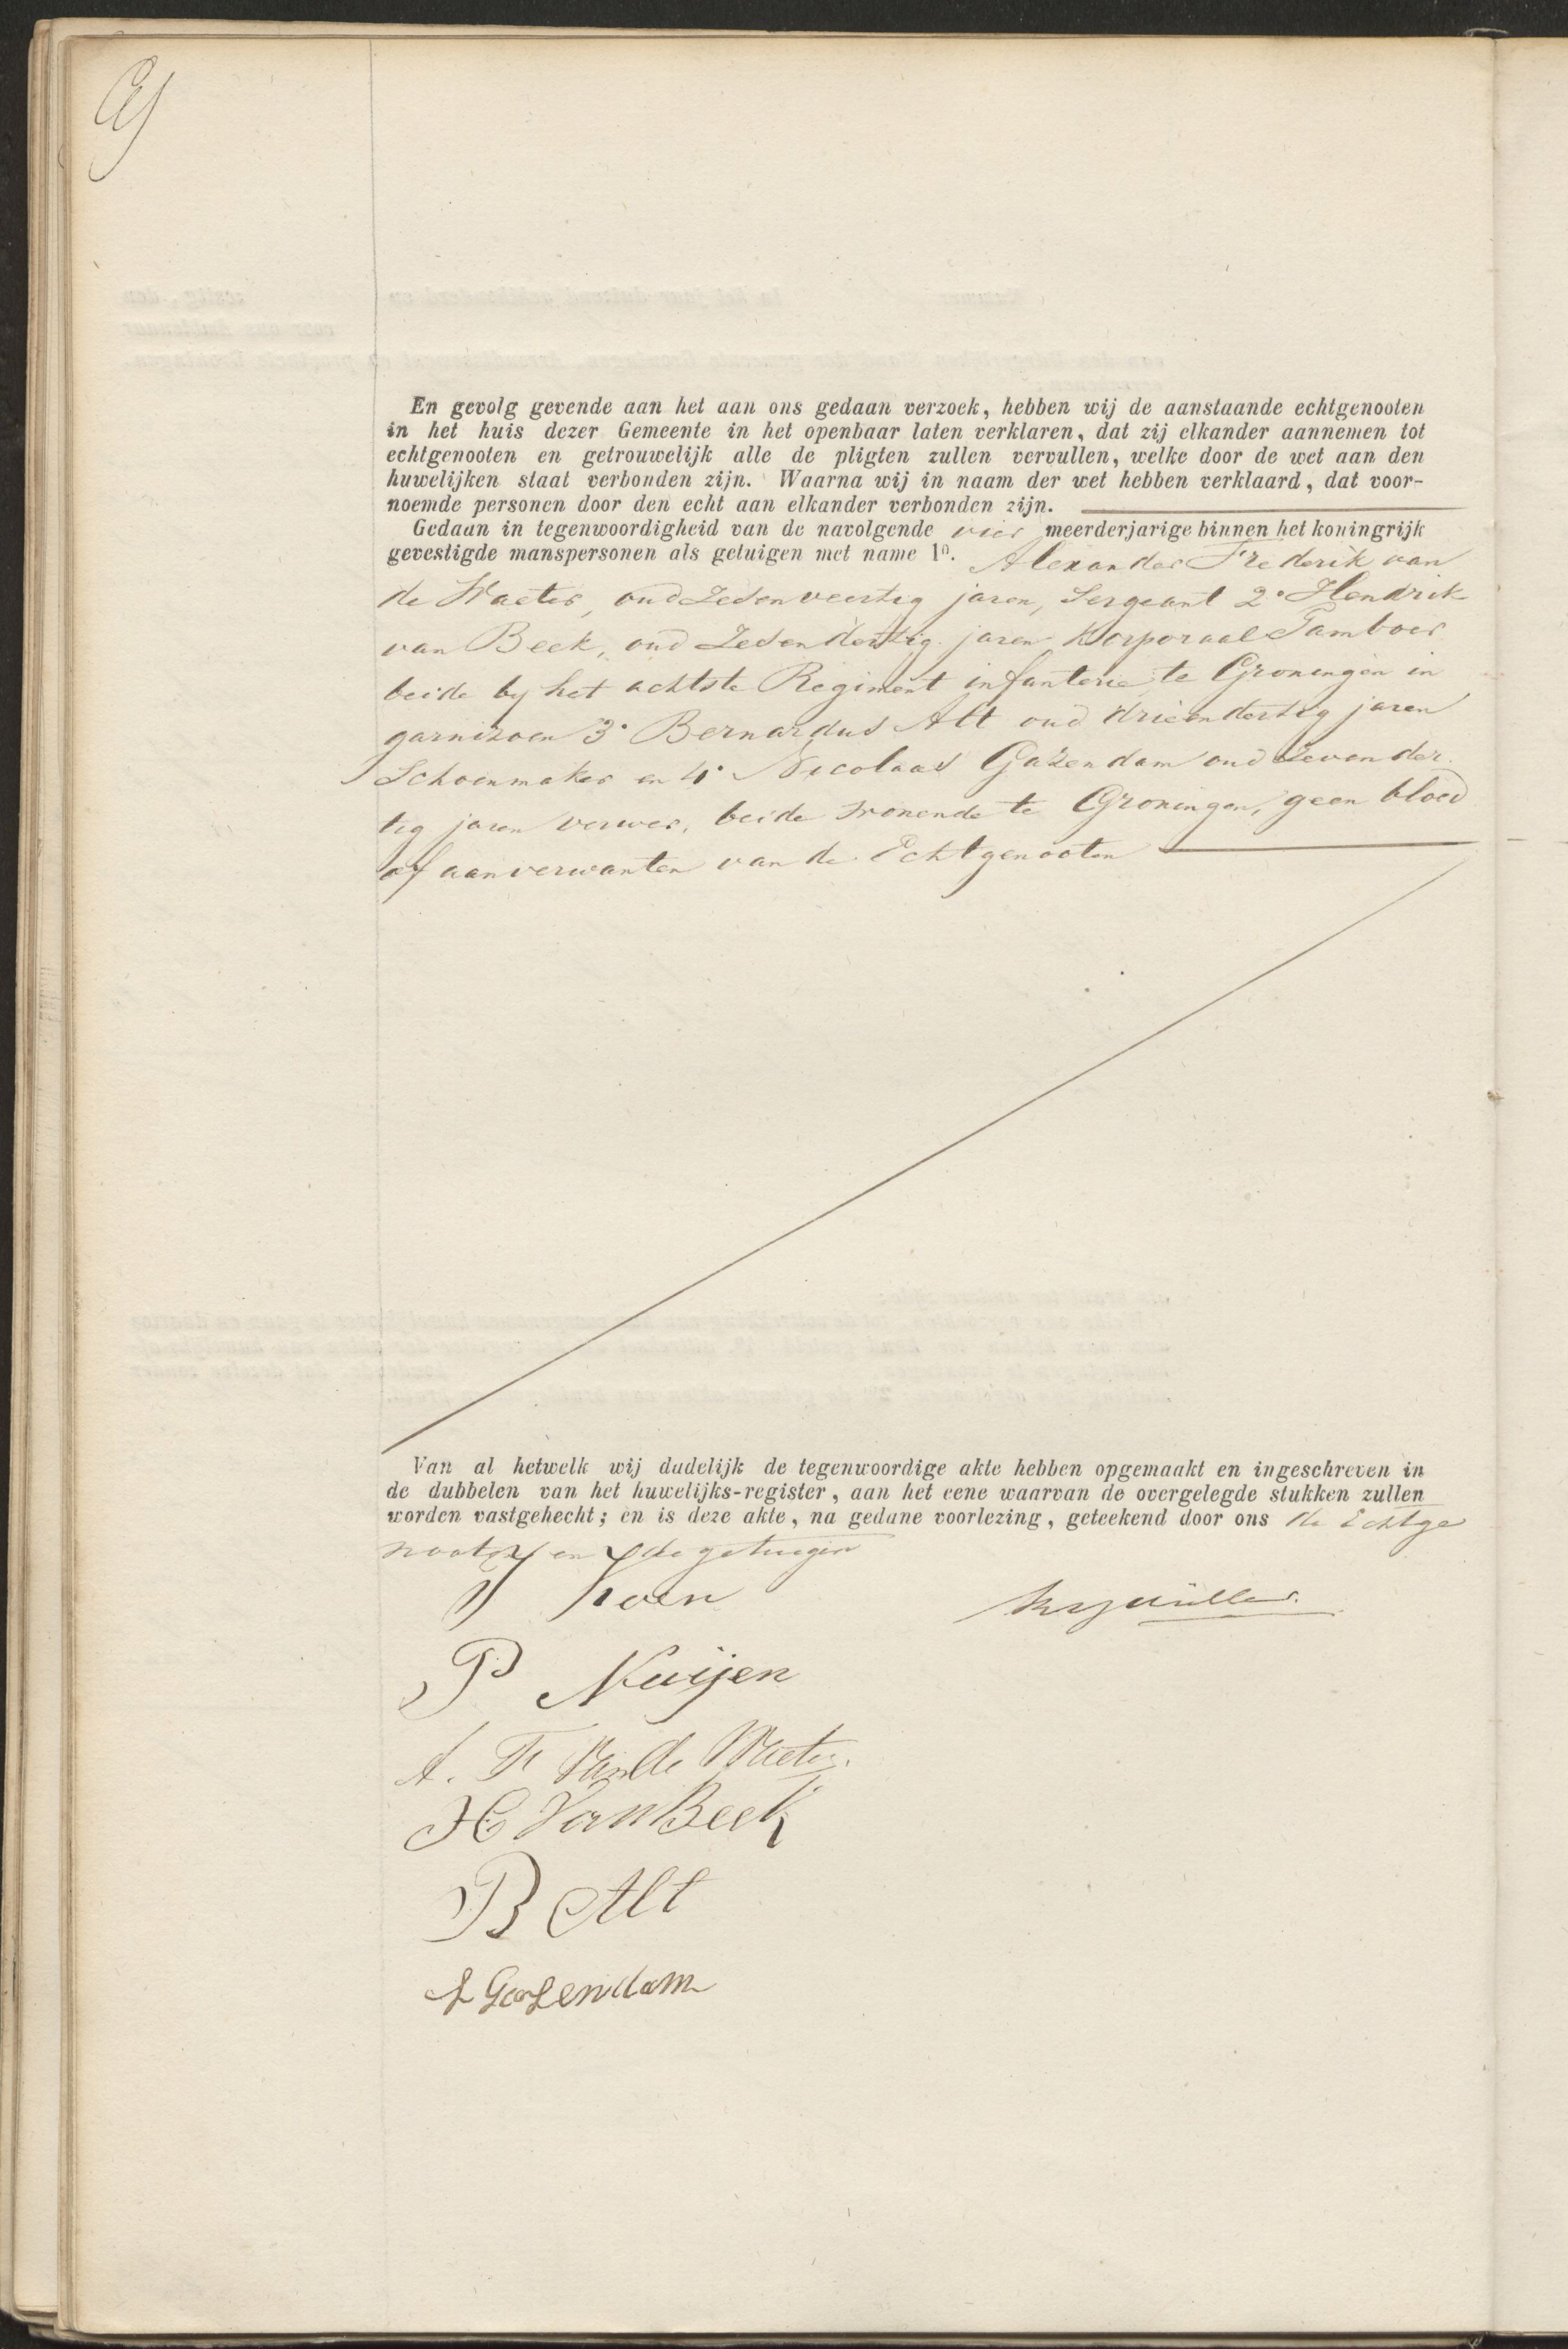 En gevolg gevende aan het aan ons gedaan verzoek, hebben wij de aanstaande echtgenooten
in het huis dezer Gemeente in het openbaar laten verklaren, dat zij elkander aannemen tot
echtgenooten en getrouwelijk alle de pligten zullen vervullen, welke door de wet aan den
huwelijken staat verbonden zijn. Waarna wij in naam der wet hebben verklaard, dat voor-
noemde personen door den echt aan elkander verbonden zijn.
Gedaan in tegenwoordigheid van de navolgende vier meerderjarige binnen het koningrijk
gevestigde manspersonen als getuigen met name 1º. Alexander Frederik van
de Waeter, oud Zesenveertig jaren, Sergeant 2º Hendrik
van Beek, oud Zesendertig jaren Korporaal Tamboer
beide by het achtste Regiment infanterie te Groningen in
garnizoen 3º Bernardus Alt oud drieendertig jaren
Schoenmaker en 4º Nicolaas Gazendam oud Zevender
tig jaren verwer, beide wonende te Groningen, geen bloed
of aanverwanten van de Echtgenooten
Van al hetwelk wij dadelijk de tegenwoordige akte hebben opgemaakt en ingeschreven in
de dubbelen van het huwelijks-register, aan het eene waarvan de overgelegde stukken zullen
worden vastgehecht; en is deze akte, na gedane voorlezing, geteekend door ons de Echtge
nooten en de getuigen
Koen
P Nuijen
A. F. Van de Waeter.
H Van Beek
B Alt
Gazendam